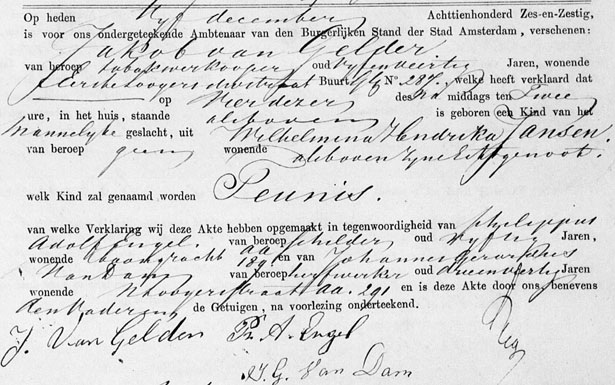 Op heden Vyf december Achttienhonderd Zes-en-Zestig,
is voor ons ondergeteekende Ambtenaar van den Burgerlijken Stand der Stad Amsterdam, verschenen:
Jakob van Gelder
van beroep tabakverkooper oud vyfenveertig Jaren, wonende
Buurt N° 237, welke heeft verklaard dat
op Vier dezer des Na middags ten Twee
ure, in het huis, staande alsboven is geboren een Kind van het
Mannelyke geslacht, uit Wilhelmina Hendrika Jansen.
van beroep geen wonende alsboven zyne Echtgenoot.
welk Kind zal genaamd worden Teunis.
van welke Verklaring wij deze Akte hebben opgemaakt in tegenwoordigheid van Philippus
Adolf Engel. van beroep schilder oud vyftig Jaren,
wonende en van Johannes Gerardus
Van Dam van beroep oud Jaren
wonende en is deze Akte door ons, benevens
den Vader en de Getuigen, na voorlezing onderteekend.
J. Van Gelder Ph. A. Engel
J. G. Van Dam